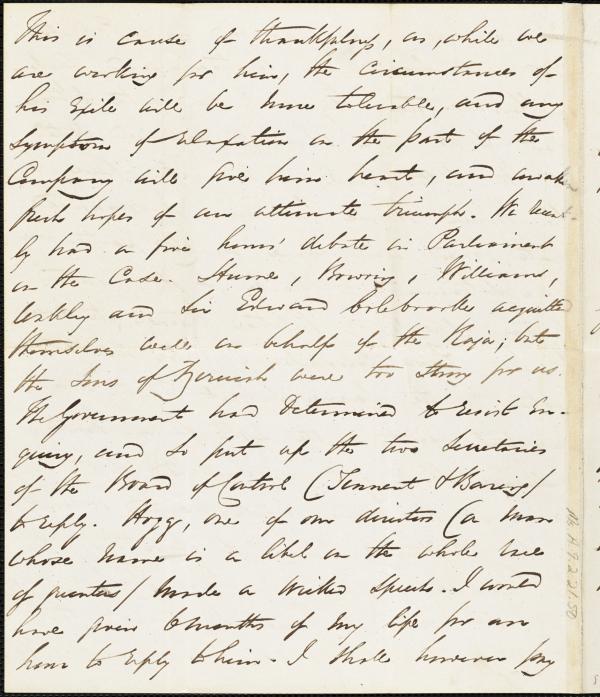 This is cause of thankfulness, as, while we
are working for him, the circumstances of
his exile will be more tolerable, and any
symptom of relaxation on the part of the
Company will give him heart, and awake
fresh hopes of an ultimate triumph. We recent-
ly had a five hours' debate in Parliament
on the Case. Hume, Bowring, Williams,
and Sir Edward Colebrooke acquitted
themselves well on behalf of the Raja; but
the sons of Zeruiah were too strong for us.
The Government had determined to resist En-
quiry, and so put up the two Secretaries
of the Board of Control (Tennent & Baring)
to reply. Hogg, one of our directors (a man
whose name is a libel on the whole race
of grunters) made a wicked speech. I would
have given 6 months of my life for an
hour to reply to him. I shall however pay
Ms. A.9.2